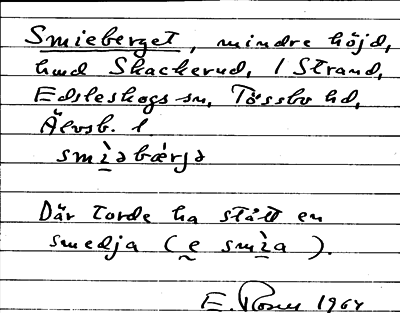 Smieberget, mindre höjd,
hmd Skackerud, / Strand,
Edsleskogs sn, Tössbo hd,
Älvsb. l
smìəbærjə
Där torde ha stått en
smedja (e smìa).
E. Rosen 1964